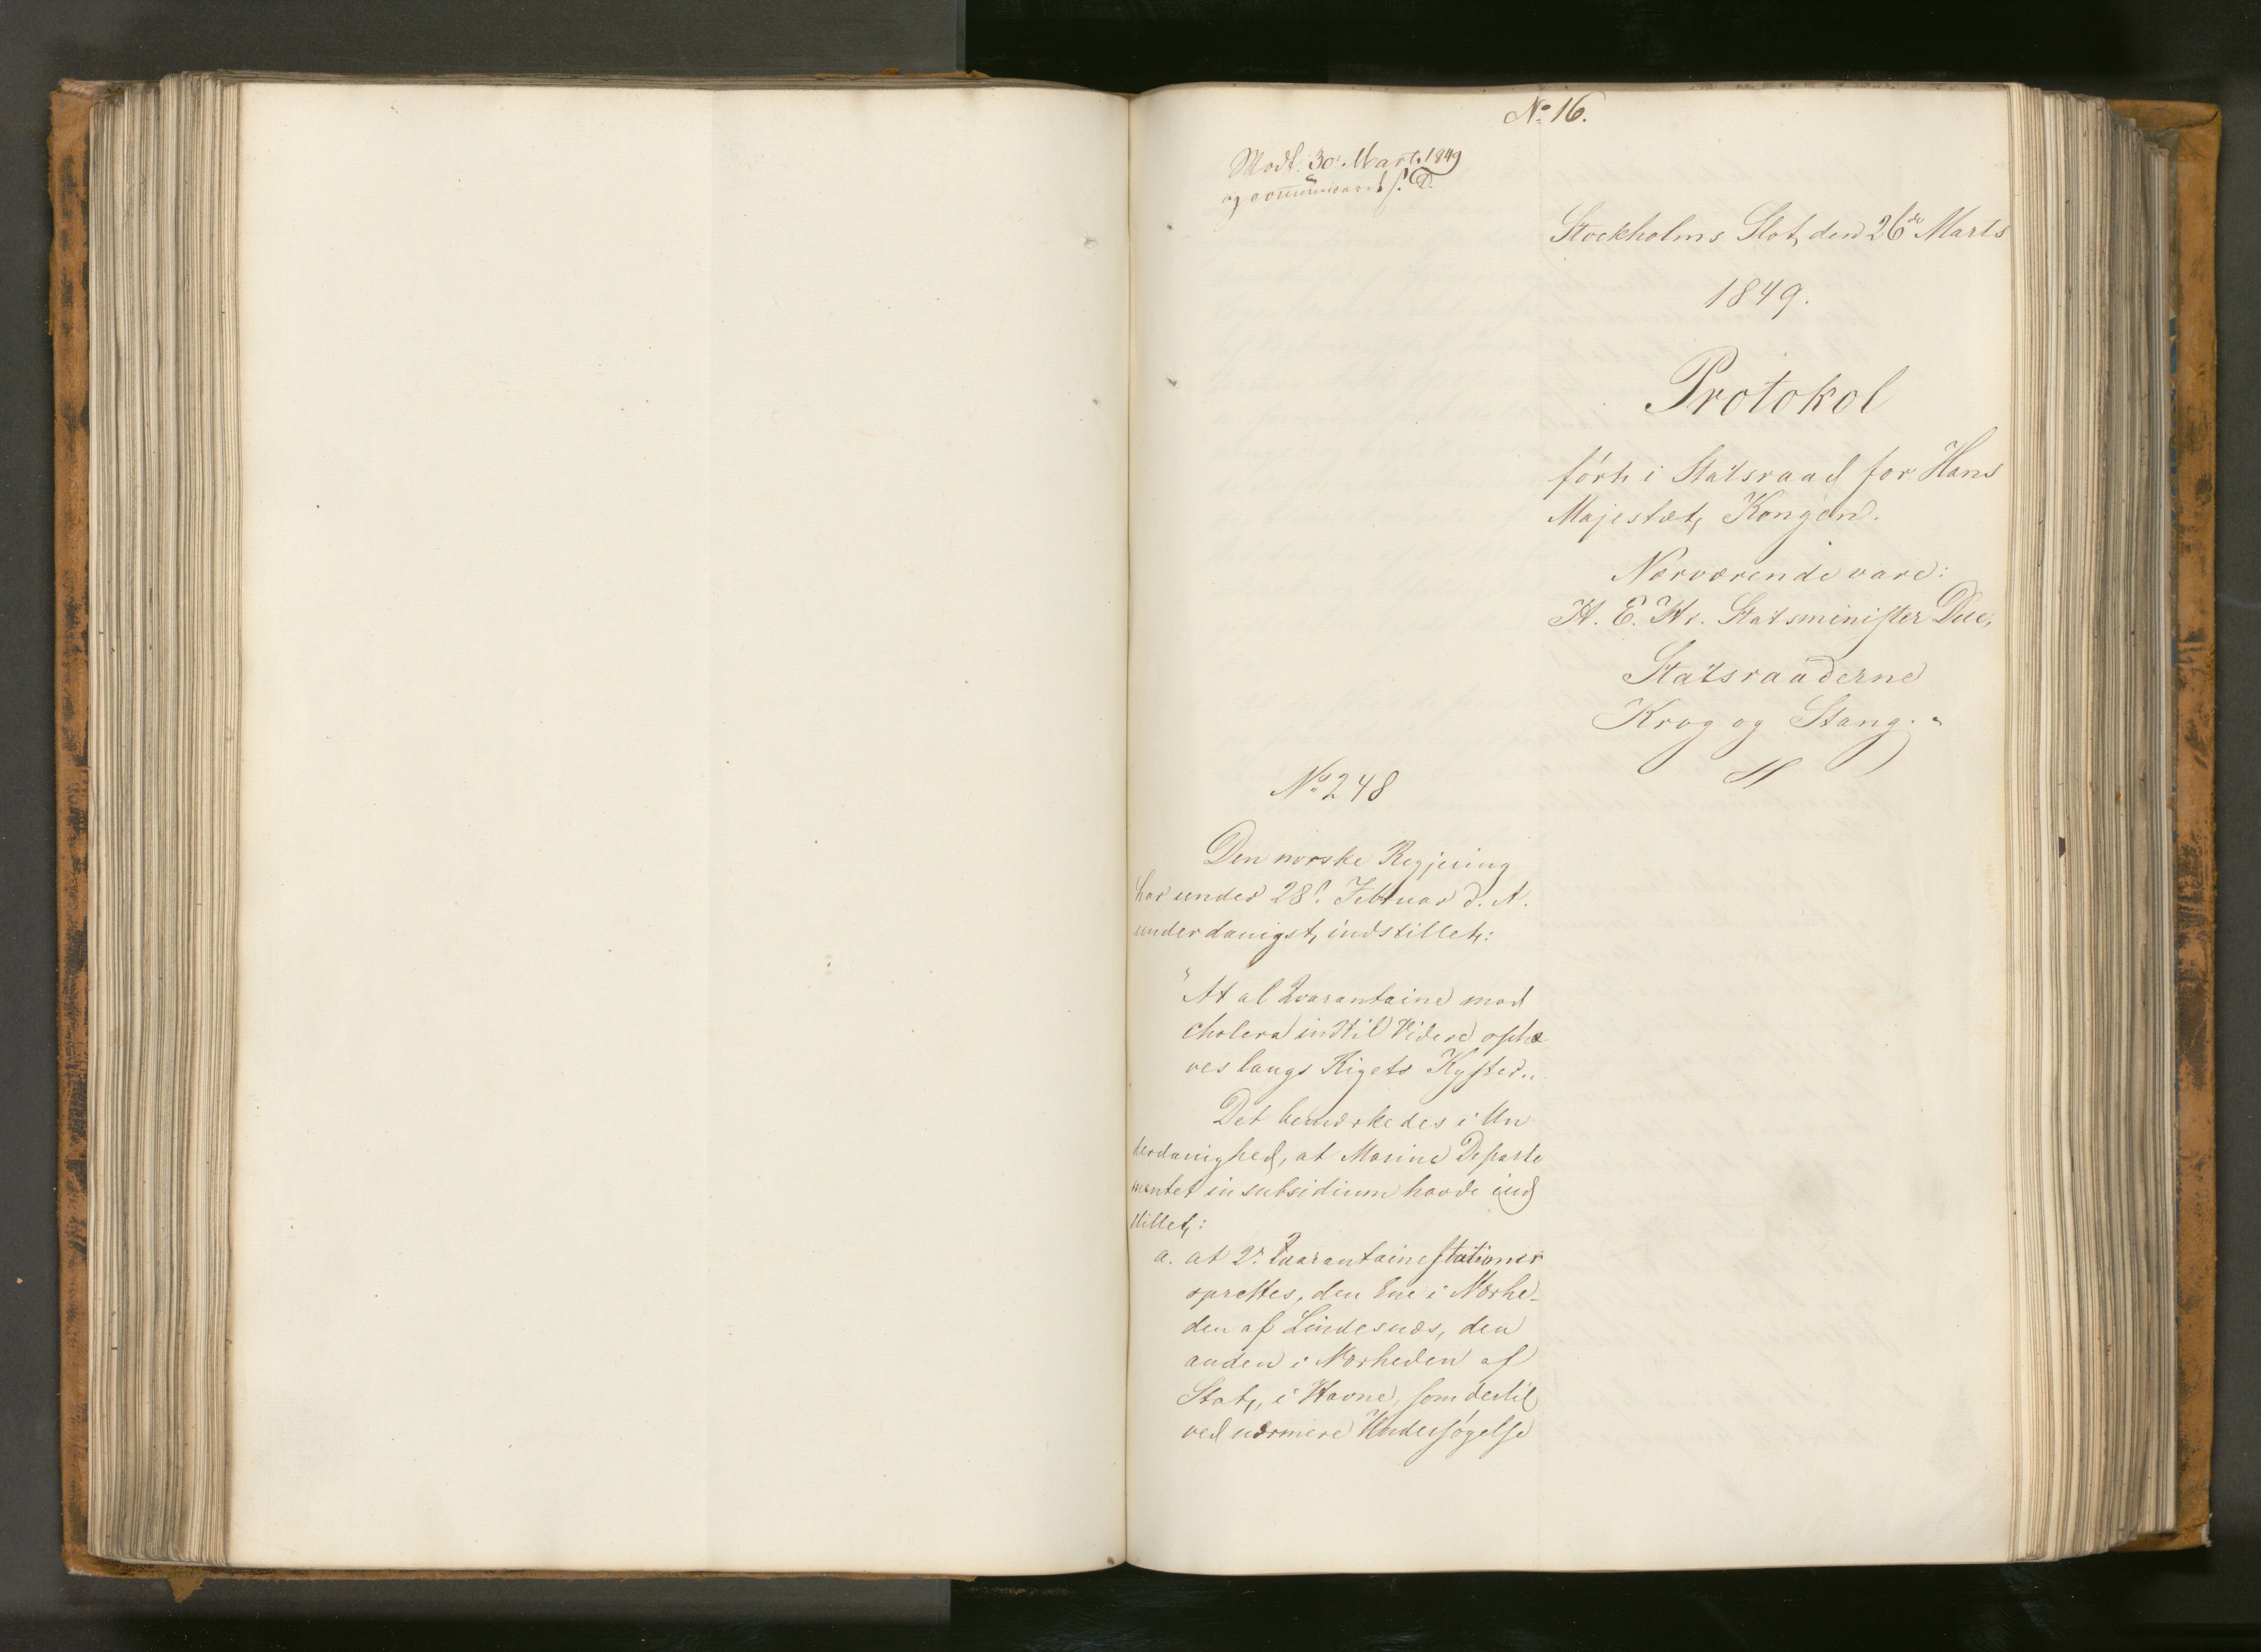 No 16.
Modt. 30. Marts 1849
og communiceret s. D.
Stockholms Slot, den 26de Marts
1849.
Protokol
ført i Statsraad for Hans
Majestæt, Kongen.
Nærværende vare:
H. E. Hr. Statsminister Due,
Statsraaderne
Krog og Stang.
No 248
Den norske Regjering
har under 28de Februar d. A.
underdanigst, indstillet:
"At al Qvarantaine mod
Cholera indtil Videre ophæ-
ves langs Rigets Kyster."
Det bemærkedes i Un
derdanighed, at Marine Departe
mentet in subsidium havde ind
stillet:
a. at 2de Qvarantainestationer
oprettes, den Ene i Nærhe-
den af Lindesnæs, den
anden i Nærheden af
Stat, i Havne, som dertil
ved nærmere Undersøgelse